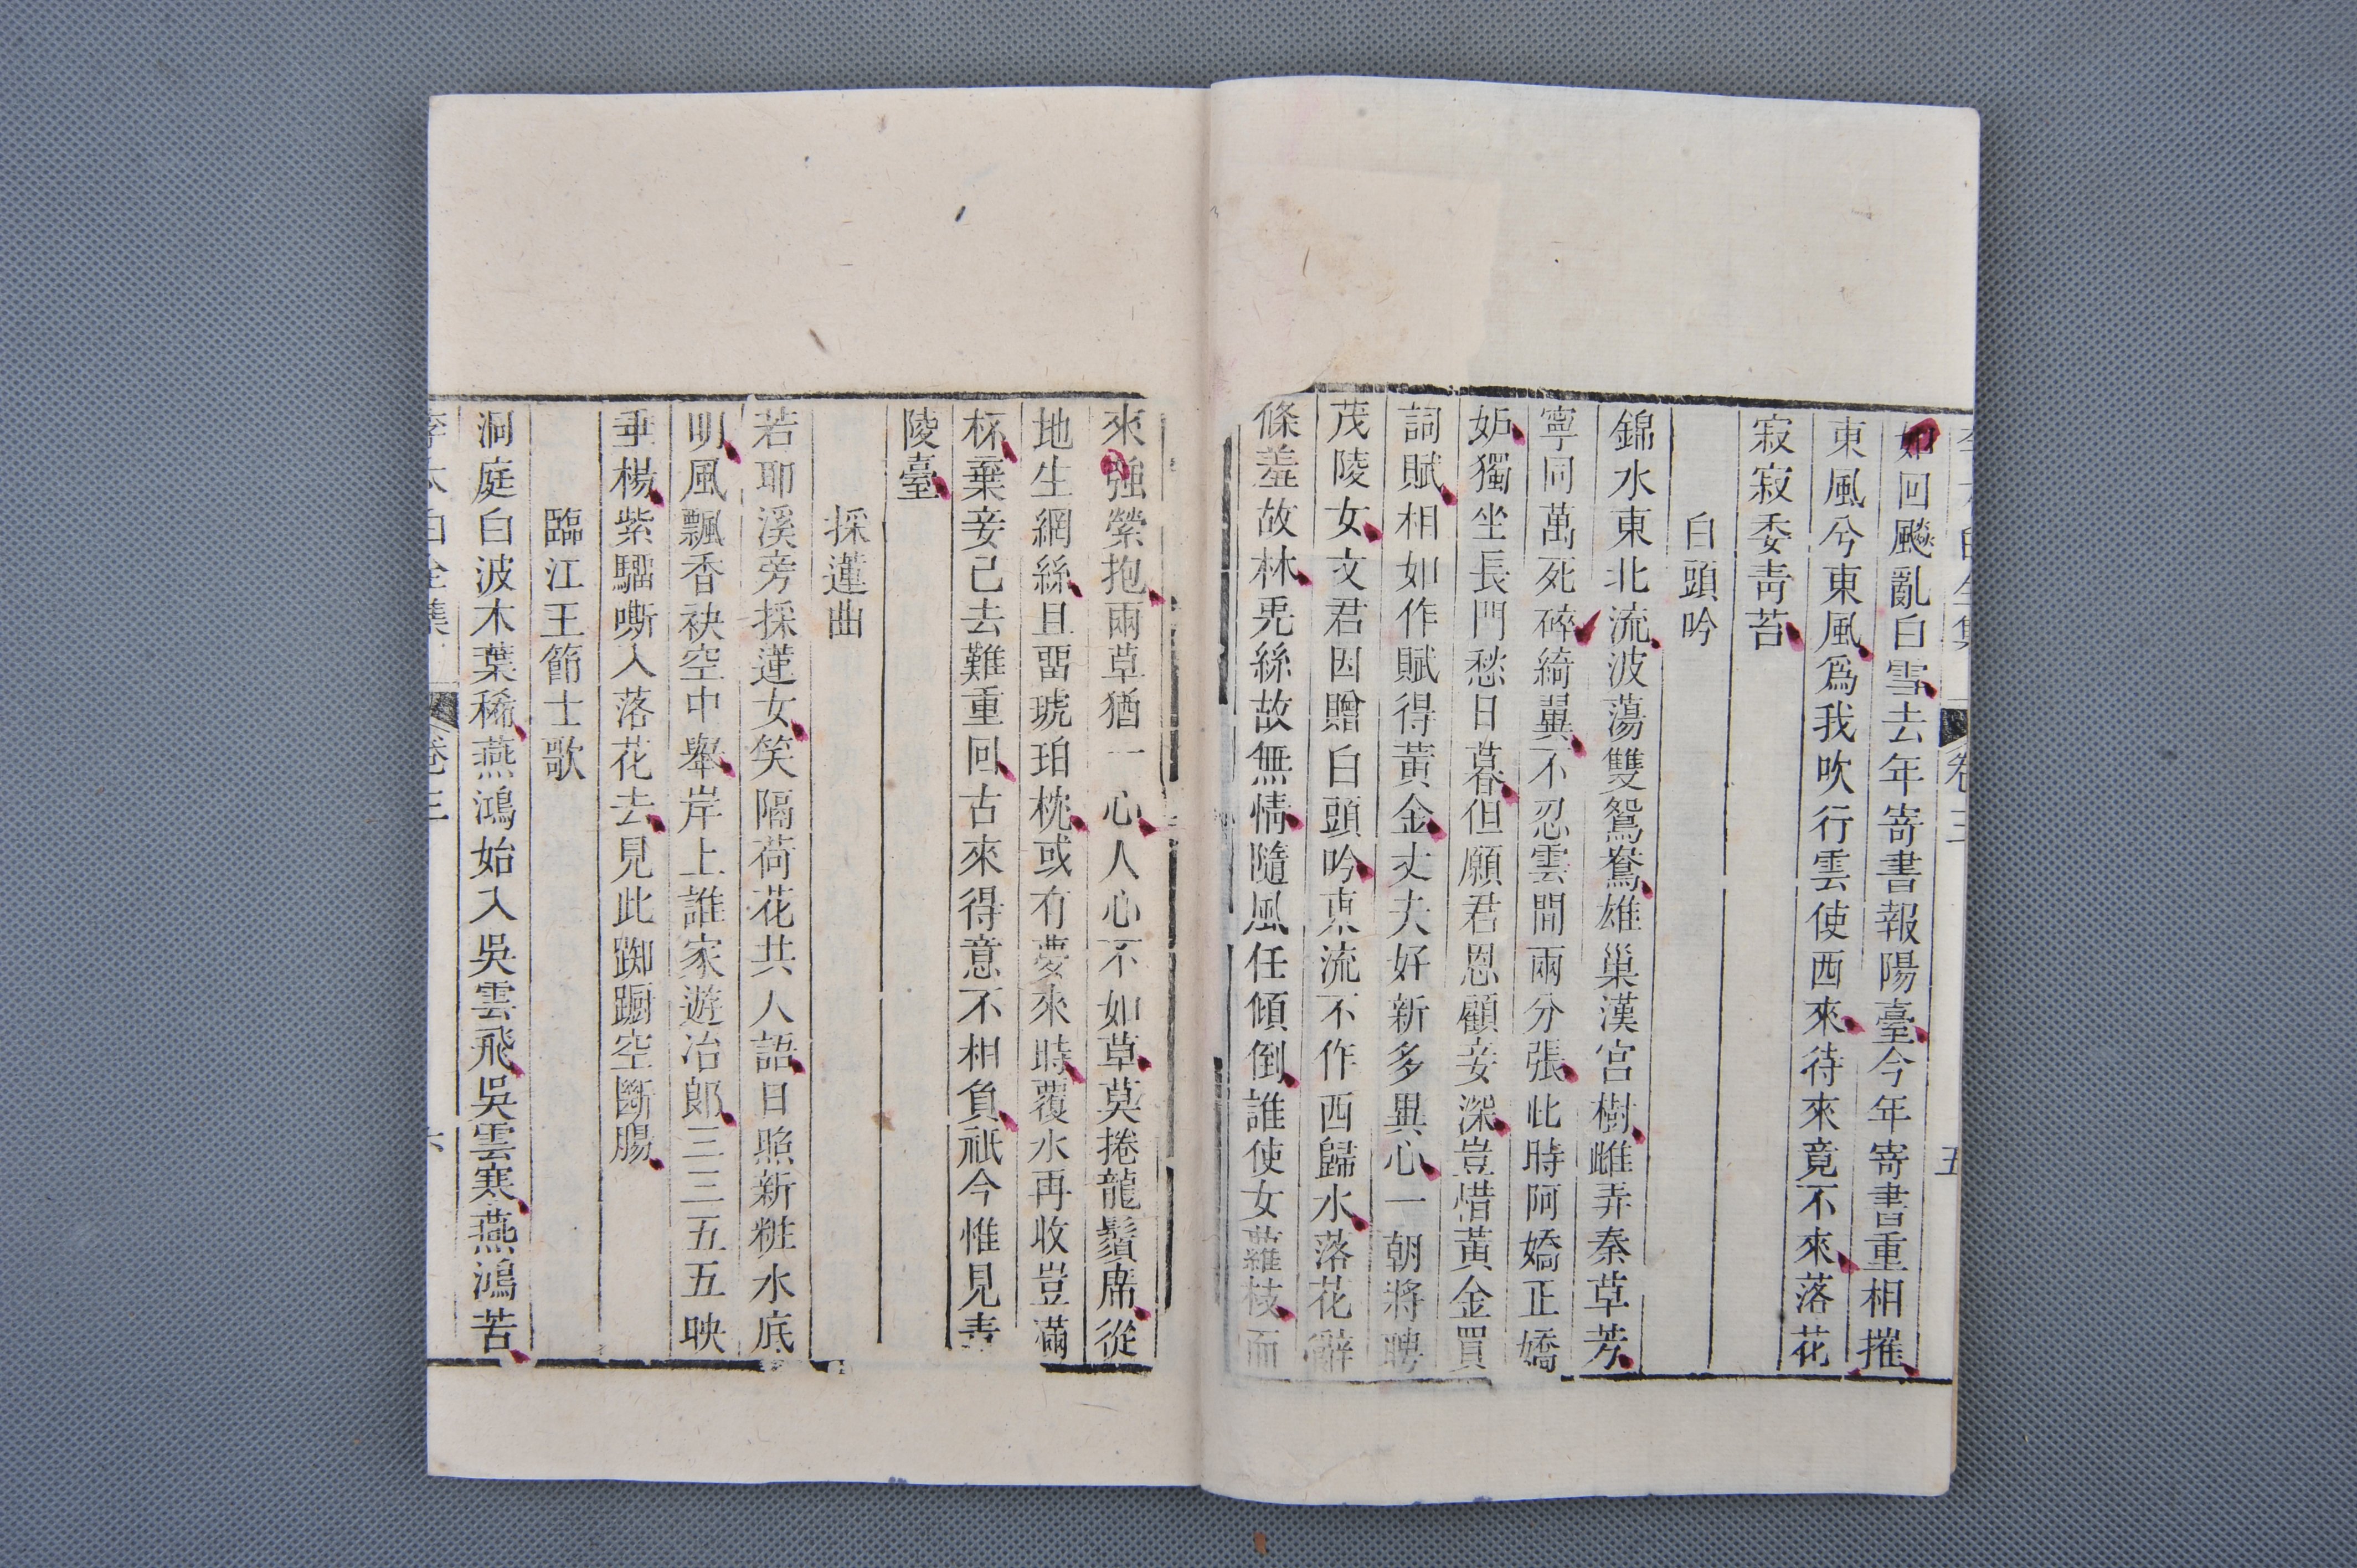 如回飈亂白雪去年寄書報陽臺今年寄書重相摧
東風兮東風爲我吹行雲使西來待來竟不來落花
寂寂委靑苔
白頭吟
錦水東北流波蕩雙鴛鴦雄巢漢宮樹雌弄秦草芳
寧同萬死碎綺翼不忍雲間兩分張此時阿嬌正嬌
妬獨坐長門愁日暮但願君恩顧妾深豈惜黃金買
詞賦相如作賦得黃金丈夫好新多異心一朝將聘
茂陵女文君因贈白頭吟東流不作西歸水落花辭
條羞故林兎絲故無情隨風任傾倒誰使女蘿枝而
來強縈抱兩草猶一心人心不如草莫捲龍鬚席從
地生網絲且畱琥珀枕或有夢來時覆水再收豈滿
杯棄妾已去難重回古來得意不相負祇今惟見靑
陵臺
採蓮曲
若耶溪旁採蓮女笑隔荷花共人語日照新粧水底
明風飄香袂空中舉岸上誰家遊冶郞三三五五映
垂楊紫騮嘶入落花去見此踟躕空斷腸
臨江王節士歌
洞庭白波木葉稀燕鴻始入吳雲飛吳雲寒燕鴻苦
卷三
五
李太白全集
卷三
六